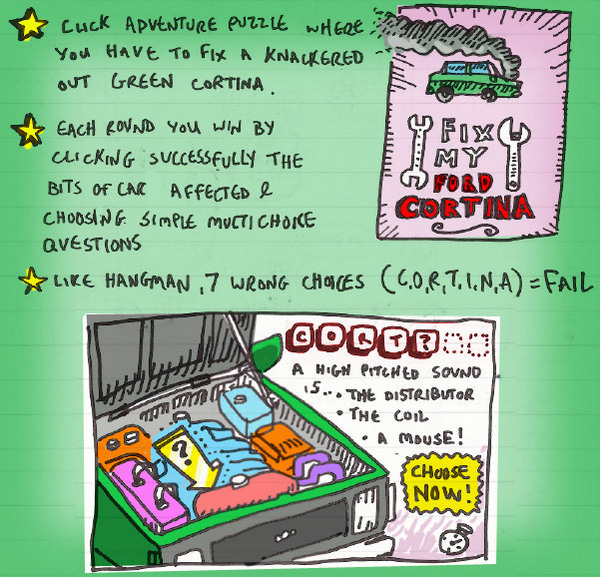 CLICK ADVENTURE PUZZLE WHERE
YOU HAVE TO FIX A KNACKERED
OUT GREEN CORTINA.
FIX
MY
FORD
CORTINA
EACH ROUND YOU WIN BY
CLICKING SUCCESSFULLY THE
BITS OF CAR AFFECTED &
CHOOSING SIMPLE MULTICHOICE
QUESTIONS
LIKE HANGMAN, 7 WRONG CHOICES (C,O,R,T,I,N,A) = FAIL
CORT?
A HIGH PITCHED SOUND
IS... • THE DISTRIBUTOR
• THE COIL
• A MOUSE!
?
CHOOSE
NOW!